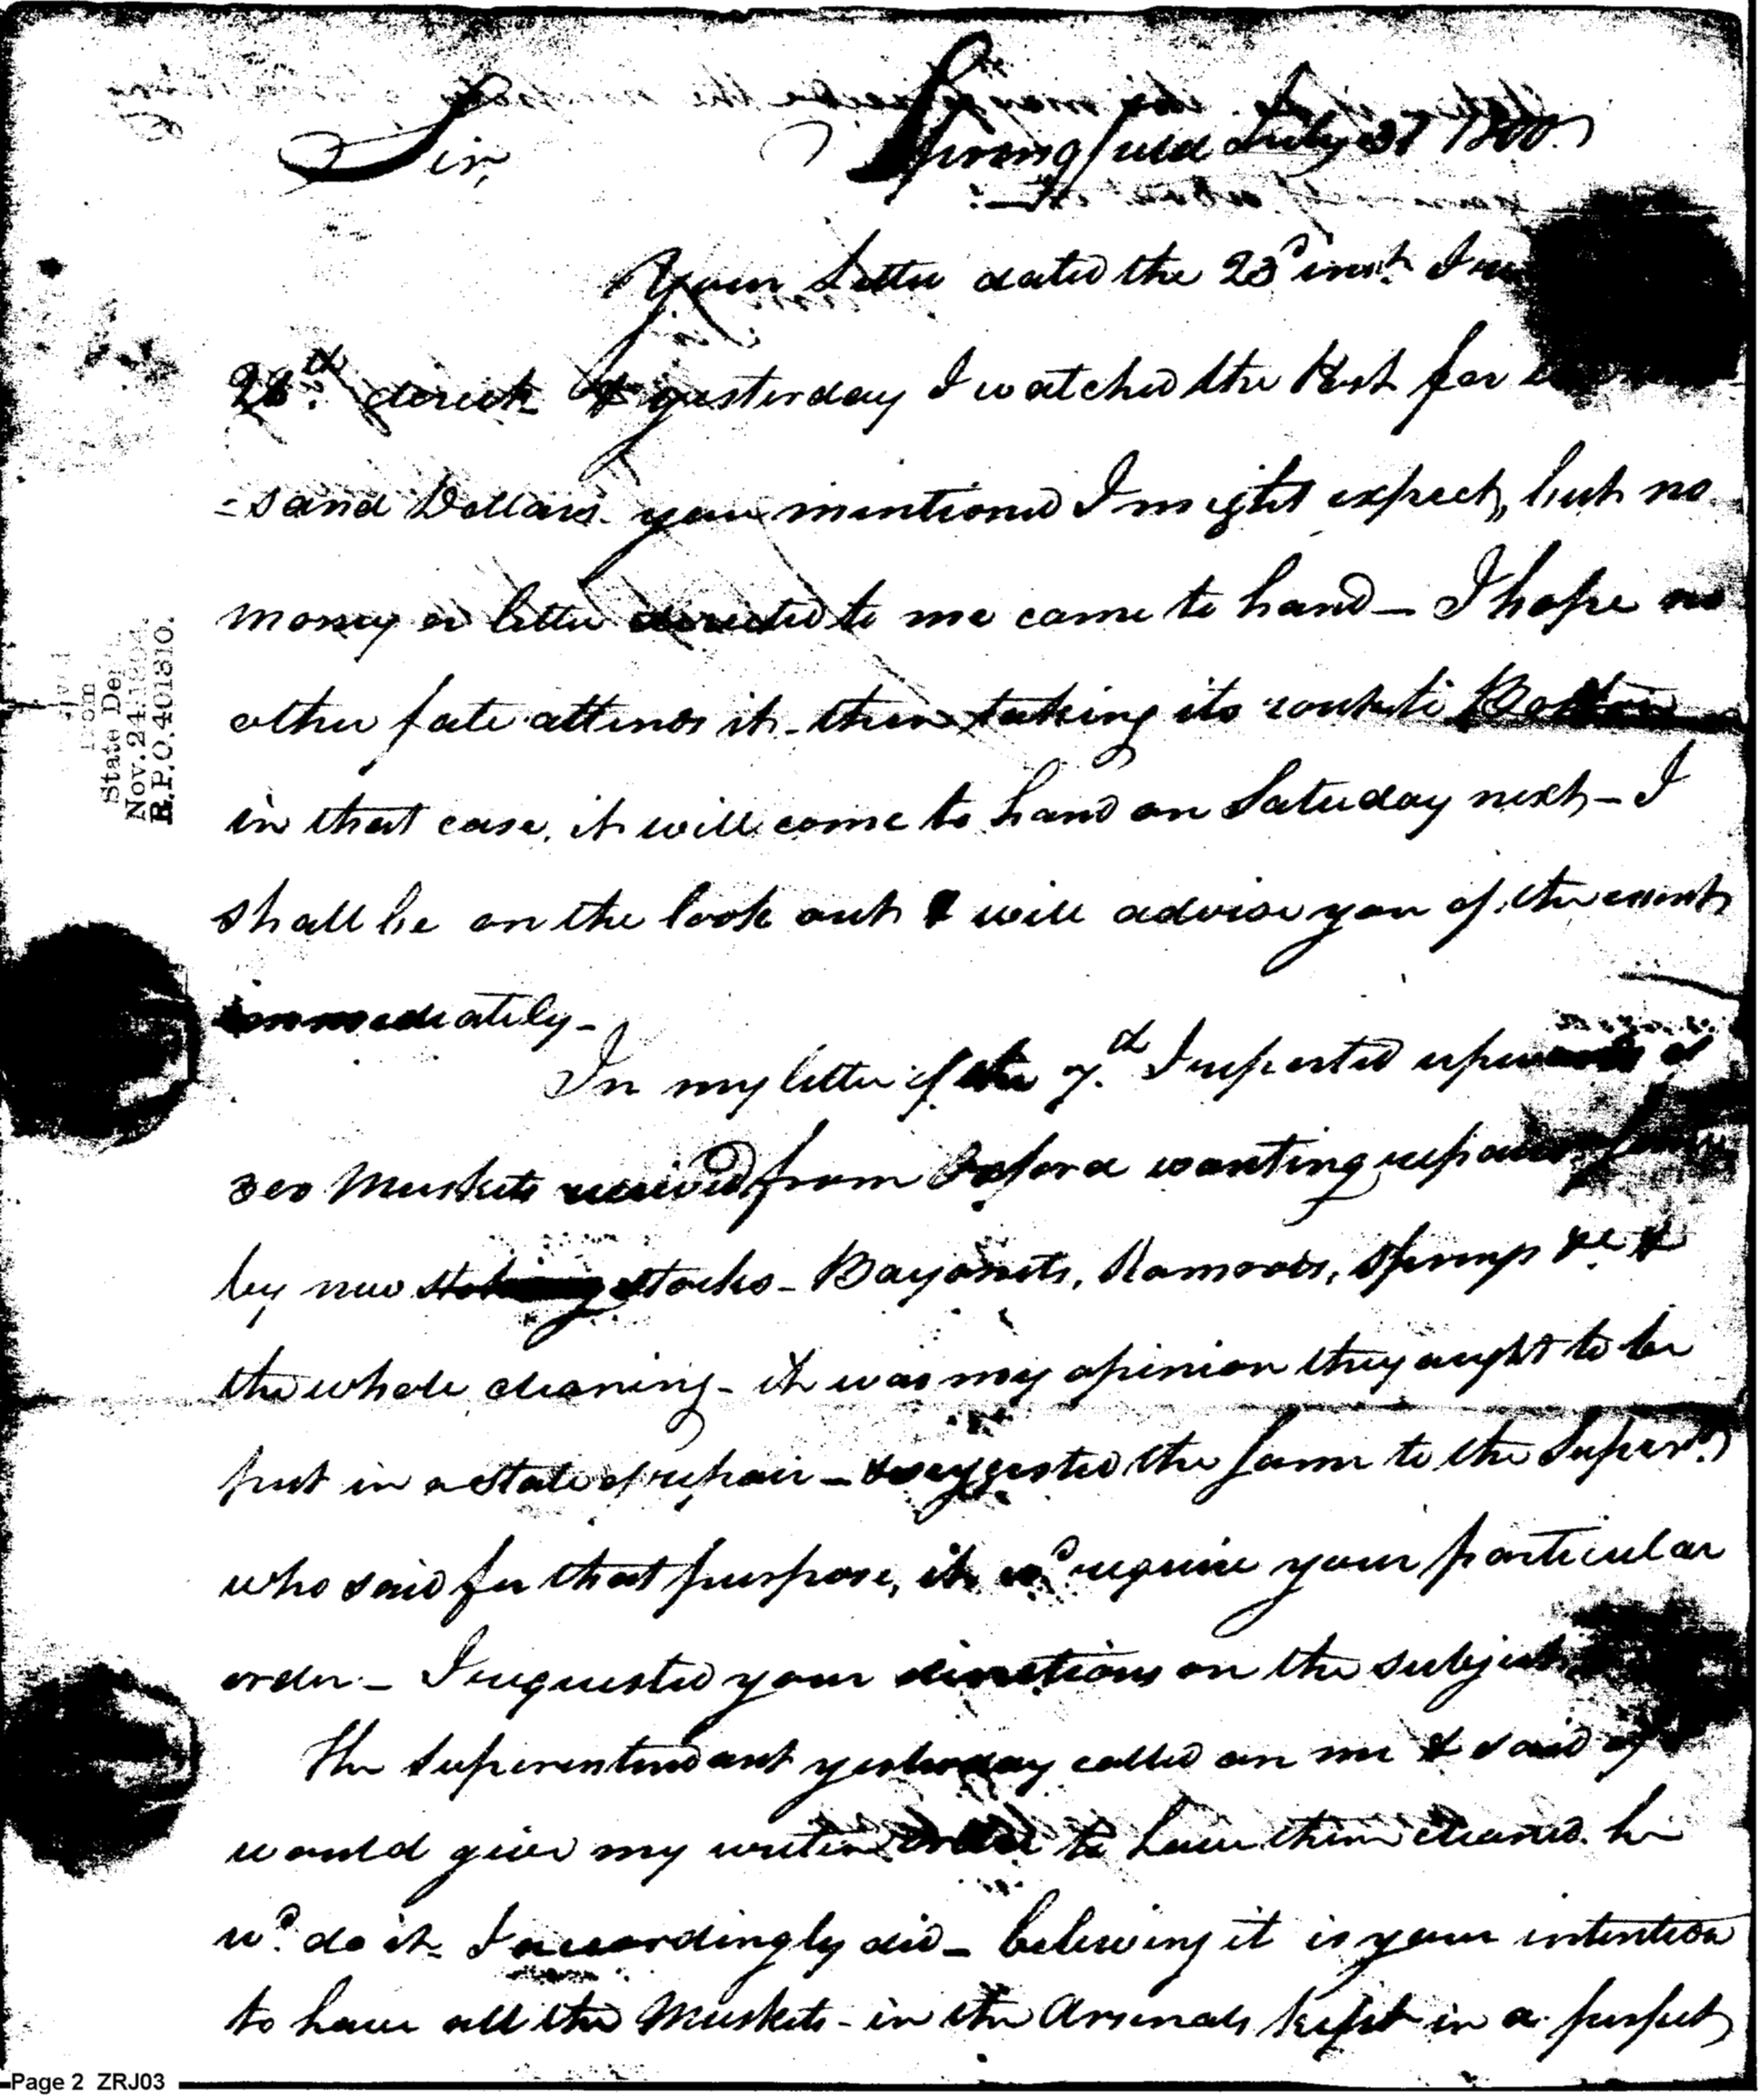 Springfield July 31 1800.
Sir,
Your Letter dated the 23d inst. I
28th. direct & yesterday I watched the Post for
=sand Dollars you mentioned I might expect, but no
money or letter directed to me came to hand — I hope no
other fate attends it - then taking its route to Boston
in that case, it will come to hand on Saturday next — I
shall be on the look out & will advise you of the event
immediately -
In my letter of the 7th I reported upwards of
300 Muskets received from Oxford wanting repairs
by new stocks - Bayonets, Ramrods, Springs &c &
the whole cleaning - it was my opinion they aught to be
put in a state of repair — & suggested the same to the Supert.
who said for that purpose, it wd. require your particular
order — I requested your directions on the subject
The Superintendant yesterday called on me & said if I
would give my written order to have them cleaned. he
wd. do it - I accordingly did — believing it is your intention
to have all the Muskets - in the Arsenals kept in a perfect
State De
Nov. 24, 
R.P.O. 401810.
Page 2 ZRJ03